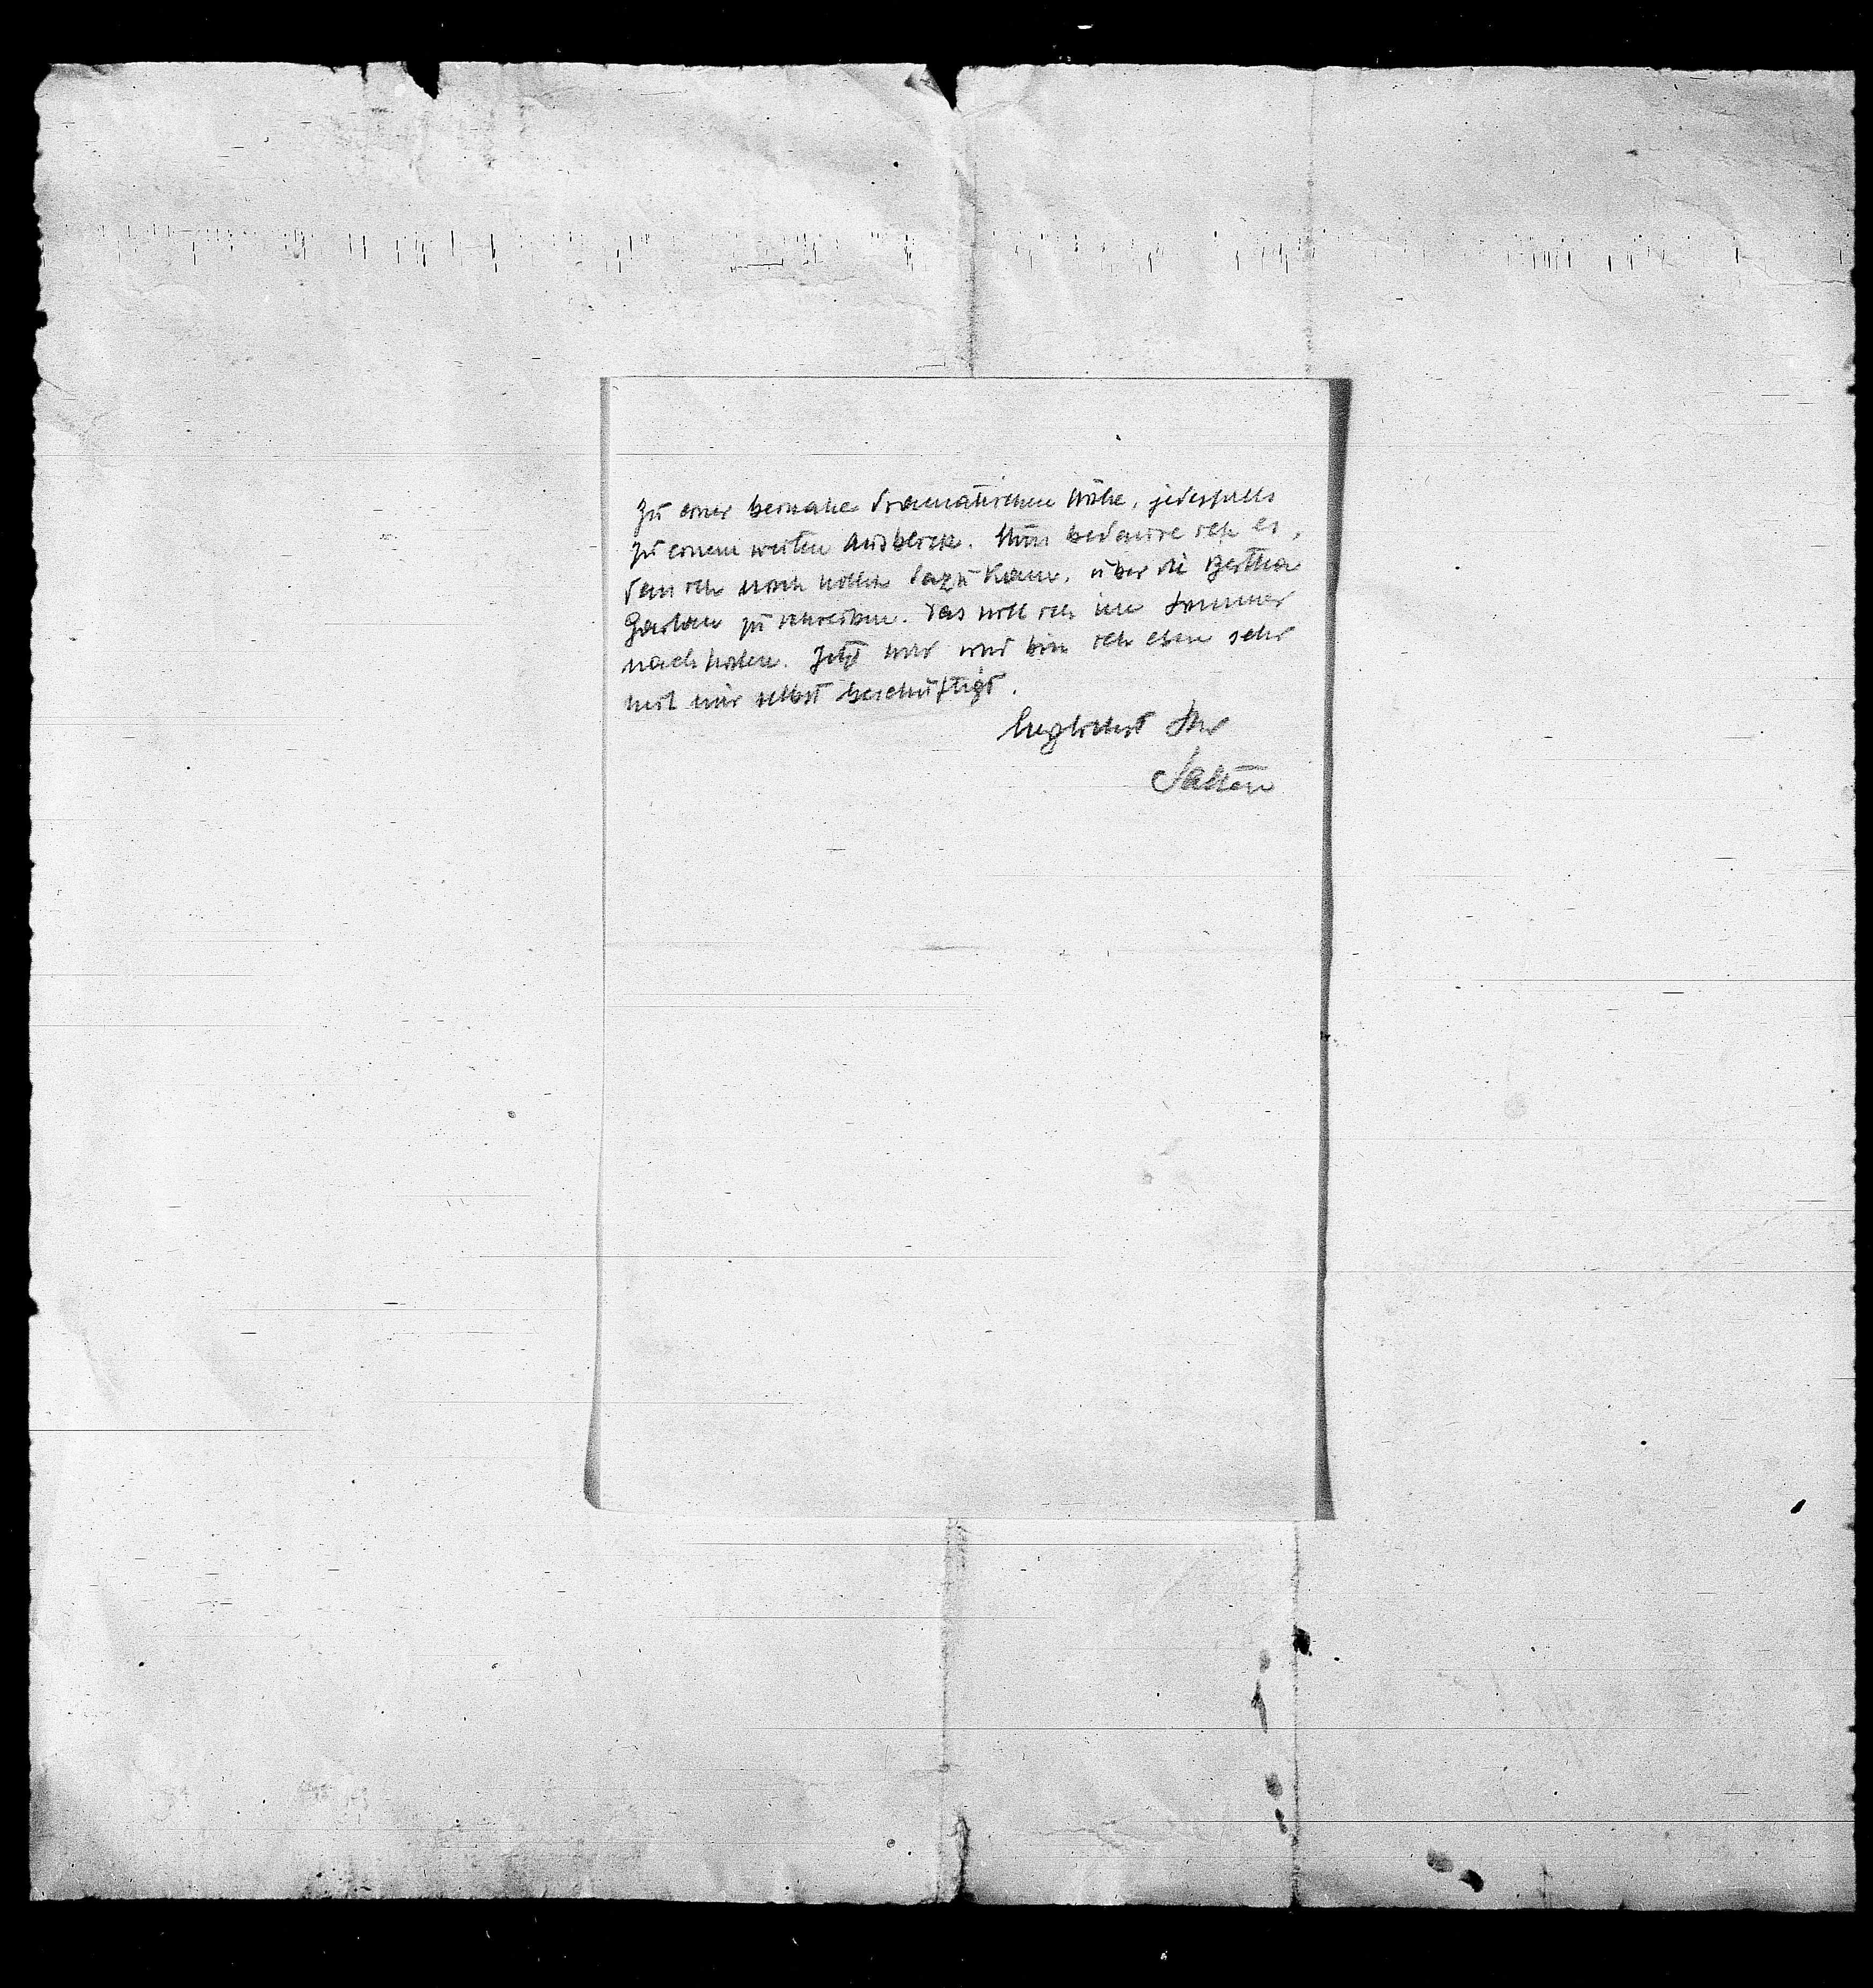 zu einer beinahe dramatischen Höhe, jedesfalls
zu einem weiten Ausblick. Nun bedaure ich es,
dass ich noch nicht dazu kam, über die Bertha
Garlan zu schreiben. Das will ich im Sommer
nachholen. Jetzt und bin ich eben sehr
mit mir selbst beschäftigt.
herzlichst Ihr
Salten